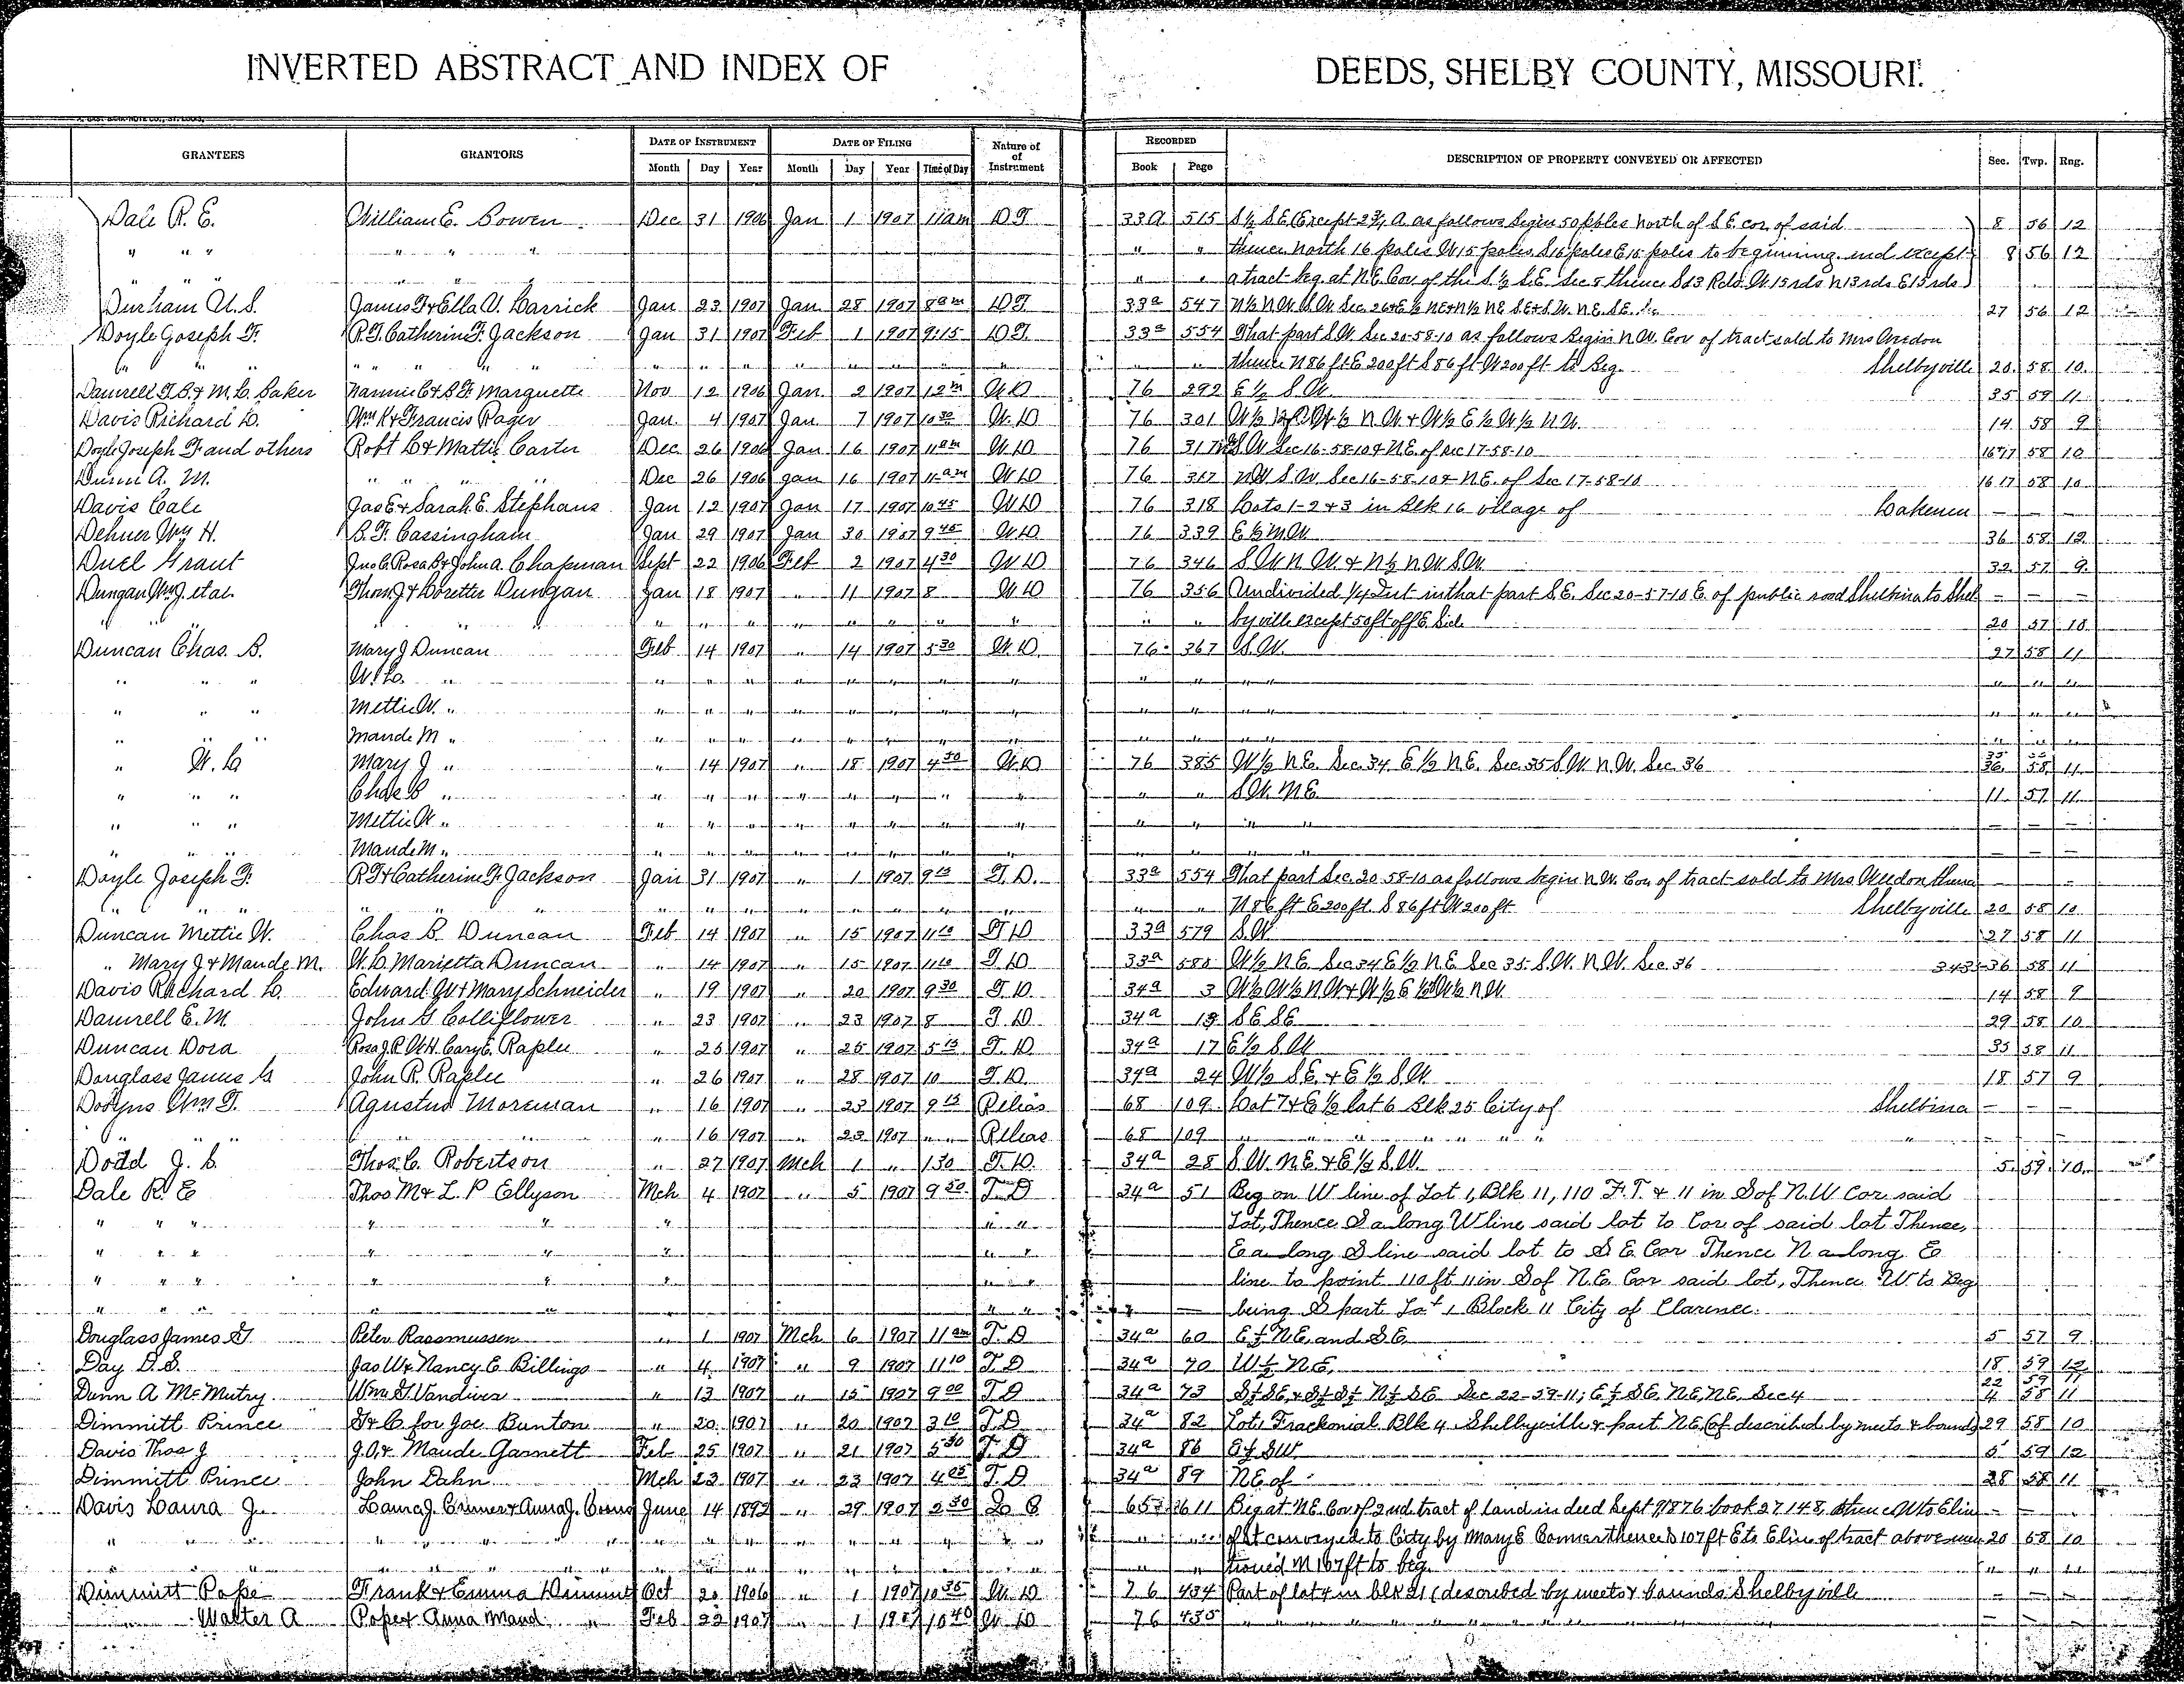 INVERTED ABSTRACT AND INDEX OF DEEDS, SHELBY COUNTY, MISSOURI.
GRANTEES GRANTORS DATE OF INSTRUMENT DATE OF FILING Nature of Instrument RECORDED DESCRIPTION OF PROPERTY CONVEYED OR AFFECTED Sec. Twp. Rng.
Month Day Year Month Day Year Time of Day Book Page
Dale R. E. William E. Bowen Dec 31 1906 Jan 1 1907 11am D T 33a 515 S½ S.E. (Except 2 A. as follows Begin 50 poles North of S.E. cor. of said 8 56 12
" " " " " " thence North 16 poles W 15 poles S 16 poles E 15 poles to beginning and except 8 56 12
" " " " a tract beg. at N.E. Cor of the S½ S.E. Sec 5 thence S 13 Rds. W. 15 rds N 13 rds E 15 rds)
Durham A. S. James T & Ella V. Carrick Jan 23 1907 Jan 28 1907 8am D T 33a 547 N½ N.W. S.W. Sec. 26 & E½ NE & N½ NE SE & S.W. N.E. S.E. 27 56 12
Doyle Joseph F. R. T. Catherine F. Jackson Jan 31 1907 Feb 1 1907 9:15 D T. 33a 554 That part S.W. Sec 20-58-10 as follows Begin N.W. Cor of tract sold to Mrs
" " " " " " " thence N 86 ft E 200 ft S 86 ft W 200 ft to Beg. Shelbyville 20 58 10
Danrell T. B. & M. C. Baker Nannie C & B. F. Marquette Nov 12 1906 Jan 2 1907 12m W D 76 292 E½ S.W. 35 59 11
Davis Richard D. Wm K & Francis Rager Jan 4 1907 Jan 7 1907 10 30 W. D 76 301 W½ W½ N.W. & W½ E½ W½ N.W. 14 58 9
Doyle Joseph F and others Robt C & Mattie Carter Dec 26 1906 Jan 16 1907 11am W D 76 317 S W Sec 16-58-10 & N.E. of Sec 17-58-10 16 17 58 10
Dunn A. M. " " " Dec 26 1906 Jan 16 1907 11am W D 76 317 NW S.W. Sec 16-58-10 & N.E. of Sec 17-58-10 16 17 58 10
Davis Cale Jas E & Sarah E. Stephans Jan 12 1907 Jan 17 1907 10 45 W D 76 318 Lots 1-2 & 3 in Blk 16 village of Lakenen — — —
Dehner Wm H. B. F. Cassingham Jan 29 1907 Jan 30 1907 9 45 W D 76 339 E½ N.W. 36 58 12
Duel Grant Jno C. Rosa B & John A. Chapman Sept 22 1906 Feb 2 1907 4 30 W D 76 346 S.W. N.W. & N½ N.W. S.W. 32 57 9
Dungan Wm J. et al. Thom J & Loretta Dungan Jan 18 1907 " 11 1907 8 W D 76 356 Undivided ¼ Int in that part S.E. Sec 20-57-10 E. of public road Shelbina to Shel — — —
" " " " " " " " " byville except 50 ft off E. Side 20 57 10
Duncan Chas. B. Mary J Duncan Feb 14 1907 " 14 1907 5 30 W. D. 76 367 S.W. 27 58 11
" " " W. C. " " " " " " " " " " " " " " " "
" " " Mettie W. " " " " " " " " " " " " " " " "
" " " Maude M " " " " " " " " " " " " " " " "
" W. C Mary J " " 14 1907 " 18 1907 4 30 W. D 76 385 W½ N.E. Sec. 34 E½ N.E. Sec 35 S.W. N.W. Sec. 36 35 36 58 11
" " " Chas B " " " " " " " " " " " S.W. N.E 11 57 11
" " " Mettie W " " " " " " " " " " " " " — — —
" " " Maude M " " " " " " " " " " " " " — — —
Doyle Joseph F. R T & Catherine F. Jackson Jan 31 1907 " 1 1907 9 15 T. D. 33a 554 That part Sec. 20 58-10 as follows begin N.W. Cor of tract sold to Mrs thence — — —
" " " " " " " " " " " " " " " " N 86 ft E 200 ft S 86 ft W 200 ft Shelbyville 20 58 10
Duncan Mettie W. Chas B. Duncan Feb 14 1907 " 15 1907 11 10 T D 33a 579 S.W. 27 58 11
" Mary J & Maude M. W. C. Marietta Duncan " 14 1907 " 15 1907 11 10 T. D 33a 580 W½ N.E. Sec 34 E½ N E Sec 35 S.W. N W. Sec 36 34 35 36 58 11
Davis Richard D. Edward W & Mary Schneider " 19 1907 " 20 1907 9 30 T. D 34a 3 W½ W½ N W & W½ E½ W½ N W. 14 58 9
Danrell E. M. John G Colliflower " 23 1907 " 23 1907 8 T. D 34a 13 S E S E 29 58 10
Duncan Dora Rosa J. R. W H. Cary E. Raplee " 25 1907 " 25 1907 5 15 T. D. 34a 17 E½ S.W 35 58 11
Douglass James G John R. Raplee " 26 1907 " 28 1907 10 T. D. 34a 24 W½ S.E. & E½ S.W. 18 57 9
Dobyns Wm T. Agustus Moreman " 16 1907 " 23 1907 9 15 Releas 68 109 Lot 7 & E½ lot 6 Blk 25 City of Shelbina — — —
" " " " 16 1907 " 23 1907 " " Releas 68 109 " " " " " " " — —
Dodd J. C. Thos. C. Robertson " 27 1907 Mch 1 " 1 30 T. D. 34a 28 S.W. N.E & E½ S.W. 5 59 10
Dale R. E Thos M & L. P Ellyson Mch 4 1907 " 5 1907 9 50 T. D 34a 51 Beg on W line of Lot 1, Blk 11, 110 F.T. & 11 in S of N.W Cor said
" " " " " " " " Lot, Thence S along W line said lot to Cor of said lot Thence,
" " " " " " " " E along S line said lot to S E Cor Thence N along E
" " " " " " " " line to point 110 ft 11 in S of N.E. Cor said lot, Thence W to Beg
" " " " " " " being S part Lot 1 Block 11 City of Clarence.
Douglass James G. Peter Rassmussen " 1 1907 Mch 6 1907 11am T. D 34a 60 E½ N.E. and S E 5 57 9
Day D. S. Jas W & Nancy E Billings " 4 1907 " 9 1907 11 10 T. D 34a 70 W½ N.E. 18 59 12
Dunn A McMutry Wm T. Vandiver " 13 1907 " 15 1907 9 00 T D 34a 73 S½ S.E. & S½ S½ N½ S.E Sec 22-59-11; E½ S.E. N.E. N.E. Sec 4 22 59 11 4 58 11
Dimmitt Prince S & C for Joe Bunton " 20 1907 " 20 1907 3 10 T. D 34a 82 Lots Frackonial Blk 4 Shelbyville & part N.E. of described by meets & bounds 29 58 10
Davis Thos J J. O. & Maude Garnett Feb 25 1907 " 21 1907 5 30 T. D 34a 86 E½ S W. 5 59 12
Dimmitt Prince John Dahn Mch 23 1907 " 23 1907 4 05 T. D 34a 89 N.E of 28 58 11
Davis Laura J. Laura J. & Anna J. June 14 1892 " 29 1907 2 30 65 611 Beg at N.E. Cor of 2nd tract of land in deed Sept 9 1876 book 27 148, thence W to E line — —
" " " " " " " " " " " of St conveyed to City by Mary E Conner thence S 107 ft E to E line of tract above men 20 58 10
" " " " " " " " " " " tioned N 107 ft to beg. " " "
Dimmitt Pope Frank & Emma Dimmitt Oct 20 1906 " 1 1907 10 35 W. D 76 434 Part of lot 4 in blk 21 (described by meets & bounds Shelbyville — — —
" Walter A Pope & Anna Maud " Feb 22 1907 " 1 1907 10 40 W. D 76 435 " " " " " " " " " — — —